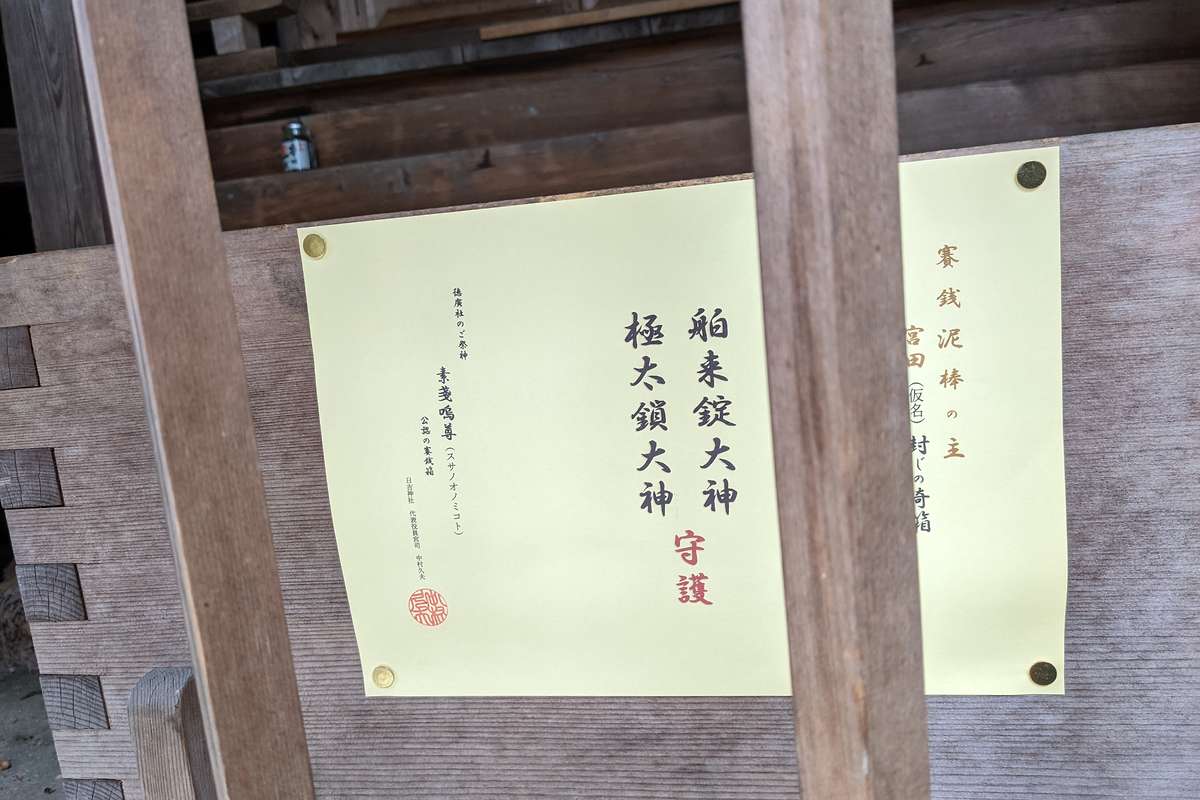 賽銭泥棒の主
宮田(仮名)封じの
舶来錠大神
極太鎖大神
守護
徳廣社のご祭神
素戔嗚尊(スサノオノミコト)
公認の賽銭箱
日吉神社 代表役員宮司 中村久夫